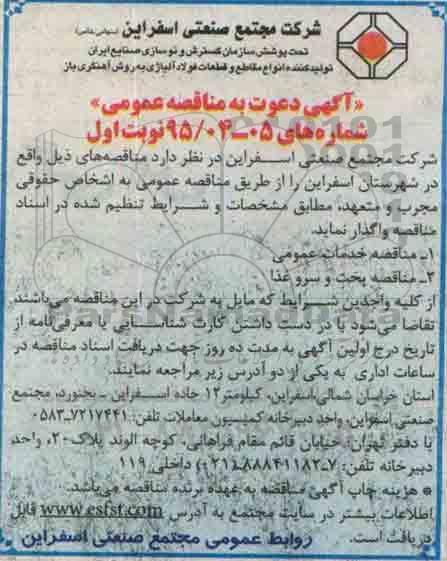 شرکت مجتمع صنعتی اسفراین (سهامی خاص)
تحت پوشش سازمان گسترش و نوسازی صنایع ایران
تولیدکننده انواع مقاطع و قطعات فولاد آلیاژی به روش آهنگری باز
«آگهی دعوت به مناقصه عمومی»
شماره‌های ۰۵-۹۵/۰۴ نوبت اول
شرکت مجتمع صنعتی اسفراین در نظر دارد مناقصه‌های ذیل واقع
در شهرستان اسفراین را از طریق مناقصه عمومی به اشخاص حقوقی
مجرب و متعهد، مطابق مشخصات و شرایط تنظیم شده در اسناد
مناقصه واگذار نماید.
۱- مناقصه خدمات عمومی
۲- مناقصه پخت و سرو غذا
از کلیه واجدین شرایط که مایل به شرکت در این مناقصه می‌باشند،
تقاضا می‌شود با در دست داشتن کارت شناسایی یا معرفی‌نامه از
تاریخ درج اولین آگهی به مدت ده روز جهت دریافت اسناد مناقصه در
ساعات اداری به یکی از دو آدرس زیر مراجعه نمایند.
استان خراسان شمالی، اسفراین، کیلومتر ۱۲ جاده اسفراین - بجنورد، مجتمع
صنعتی اسفراین، واحد دبیرخانه کمیسیون معاملات تلفن: ۷۲۱۷۴۴۱-۰۵۸۳
یا دفتر تهران: خیابان قائم مقام فراهانی، کوچه الوند پلاک ۲۰، واحد
دبیرخانه تلفن: ۷-۸۸۸۴۱۱۸۲ (۰۲۱) داخلی ۱۱۹
* هزینه چاپ آگهی مناقصه به عهده برنده مناقصه می‌باشد.
اطلاعات بیشتر در سایت مجتمع به آدرس www.esfst.com قابل
دریافت است.
روابط عمومی مجتمع صنعتی اسفراین
ParsNamadData